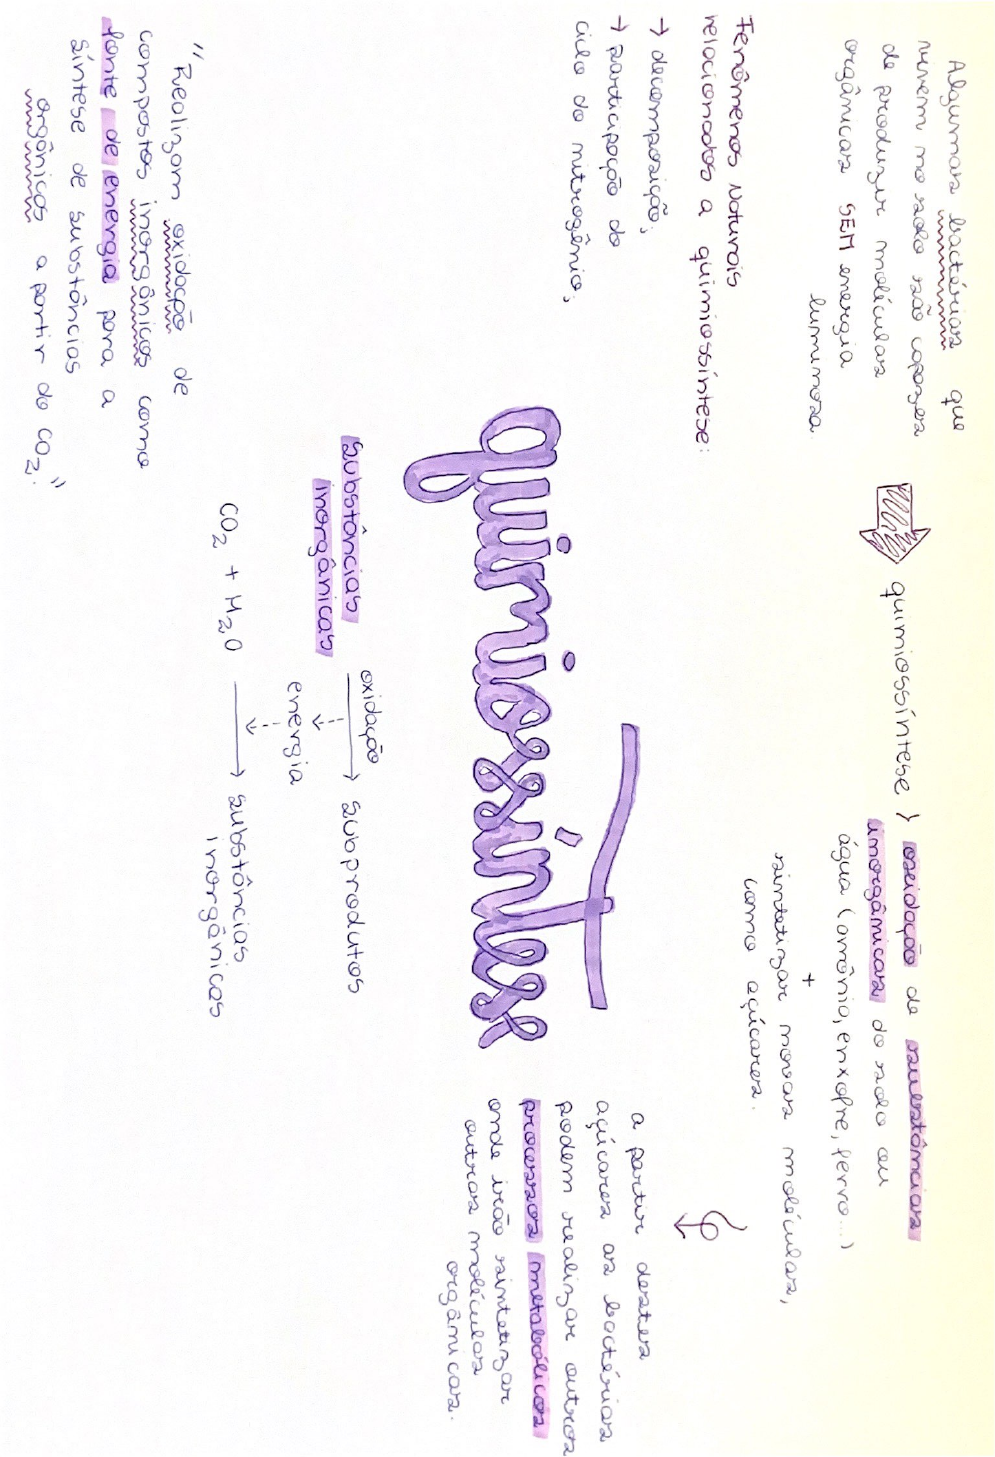 Algumas bactérias que
vivem no solo são capazes
de produzir moléculas
orgânicas SEM energia
luminosa.
quimiossíntese } oxidação de substâncias
inorgânicas do solo ou
água (amônia, enxofre, ferro...)
+
sintetizar novas moléculas,
como açúcares.
Fenômenos Naturais
relacionados a quimiossíntese:
→ decomposição;
→ participação do
ciclo do nitrogênio;
quimiossíntese
a partir destes
açúcares as bactérias
podem realizar outros
processos metabólicos
onde irão sintetizar
outras moléculas
orgânicas.
"Realizam oxidação de
compostos inorgânicos como
fonte de energia para a
síntese de substâncias
orgânicas a partir do CO2."
substâncias
inorgânicas
oxidação
→ subprodutos
energia
CO2 + H2O → substâncias
inorgânicas